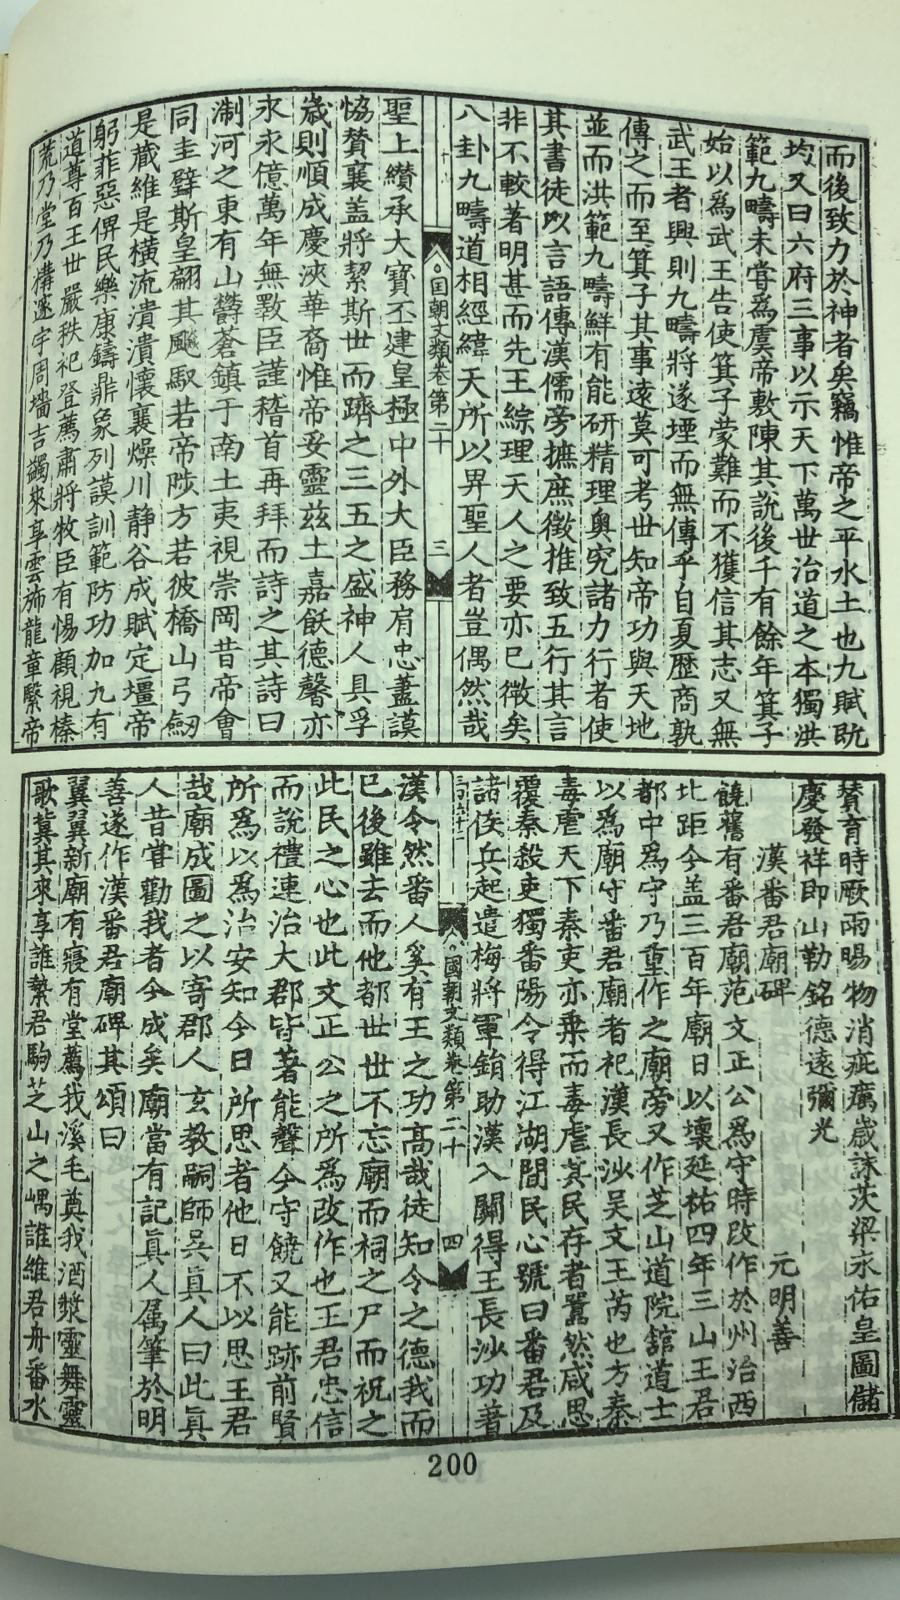 而後致力於神者矣竊惟帝之平水土也九賦既
均又曰六府三事以示天下萬世治道之本獨洪
範九疇未甞為虞帝敷陳其說後千有餘年箕子
始以為武王告使箕子蒙難而不獲信其志又無
武王者興則九疇將遂堙而無傳乎自夏歷商孰
傳之而至箕子其事遠莫可考世知帝功與天地
並而洪範九疇鮮有能研精理奥究諸力行者使
其書徒以言語傳漢儒旁摭庶徵推致五行其言
非不較著明甚而先王綜理天人之要亦已微矣
八卦九疇道相經緯天所以畀聖人者豈偶然哉
國朝文類卷第二十
三
聖上纘承大寶丕建皇極中外大臣務肩忠藎謨
恊賛襄盖將絜斯世而躋之三五之盛神人具孚
歳則順成慶浹華裔惟帝妥靈兹土嘉飫德馨亦
永永億萬年無斁臣謹稽首再拜而詩之其詩曰
淛河之東有山欝蒼鎮于南土夷視崇岡昔帝會
同圭璧斯皇翩其飈馭若帝陟方若彼橋山弓劒
是藏維是橫流潰潰懷襄燥川静谷成賦定壃帝
躬菲惡俾民樂康鑄鼎象列謨訓範防功加九有
道尊百王世嚴秩祀登薦肅將牧臣有惕顧視榛
荒乃堂乃構邃宇周墻吉蠲來享雲旆龍章繄帝
賛育時厥雨暘物消疵癘歳誄茨梁永佑皇圖儲
慶發祥即山勒銘德遠彌光
漢番君廟碑
元明善
饒舊有番君廟范文正公為守時改作於州治西
北距今盖三百年廟日以壞延祐四年三山王君
都中為守乃重作之廟旁又作芝山道院舘道士
以為廟守番君廟者祀漢長沙吴文王芮也方秦
毒虐天下秦吏亦乗而毒虐其民存者囂然咸思
覆秦殺吏獨番陽令得江湖間民心號曰番君及
諸侯兵起遣梅將軍鋗助漢入關得王長沙功著
國朝文類卷第二十
四
漢令然番人奚有王之功髙哉徒知令之德我而
已後雖去而他都世世不忘廟而祠之尸而祝之
此民之心也此文正公之所為改作也王君忠信
而說禮連治大郡皆著能聲今守饒又能跡前賢
所為以為治安知今日所思者他日不以思王君
哉廟成圖之以寄郡人玄教嗣師吴真人曰此真
人昔甞勸我者今成矣廟當有記真人属筆於明
善遂作漢番君廟碑其頌曰
翼翼新廟有寢有堂薦我溪毛奠我酒漿靈舞靈
歌冀其來享誰縶君駒芝山之嵎誰維君舟番水
200